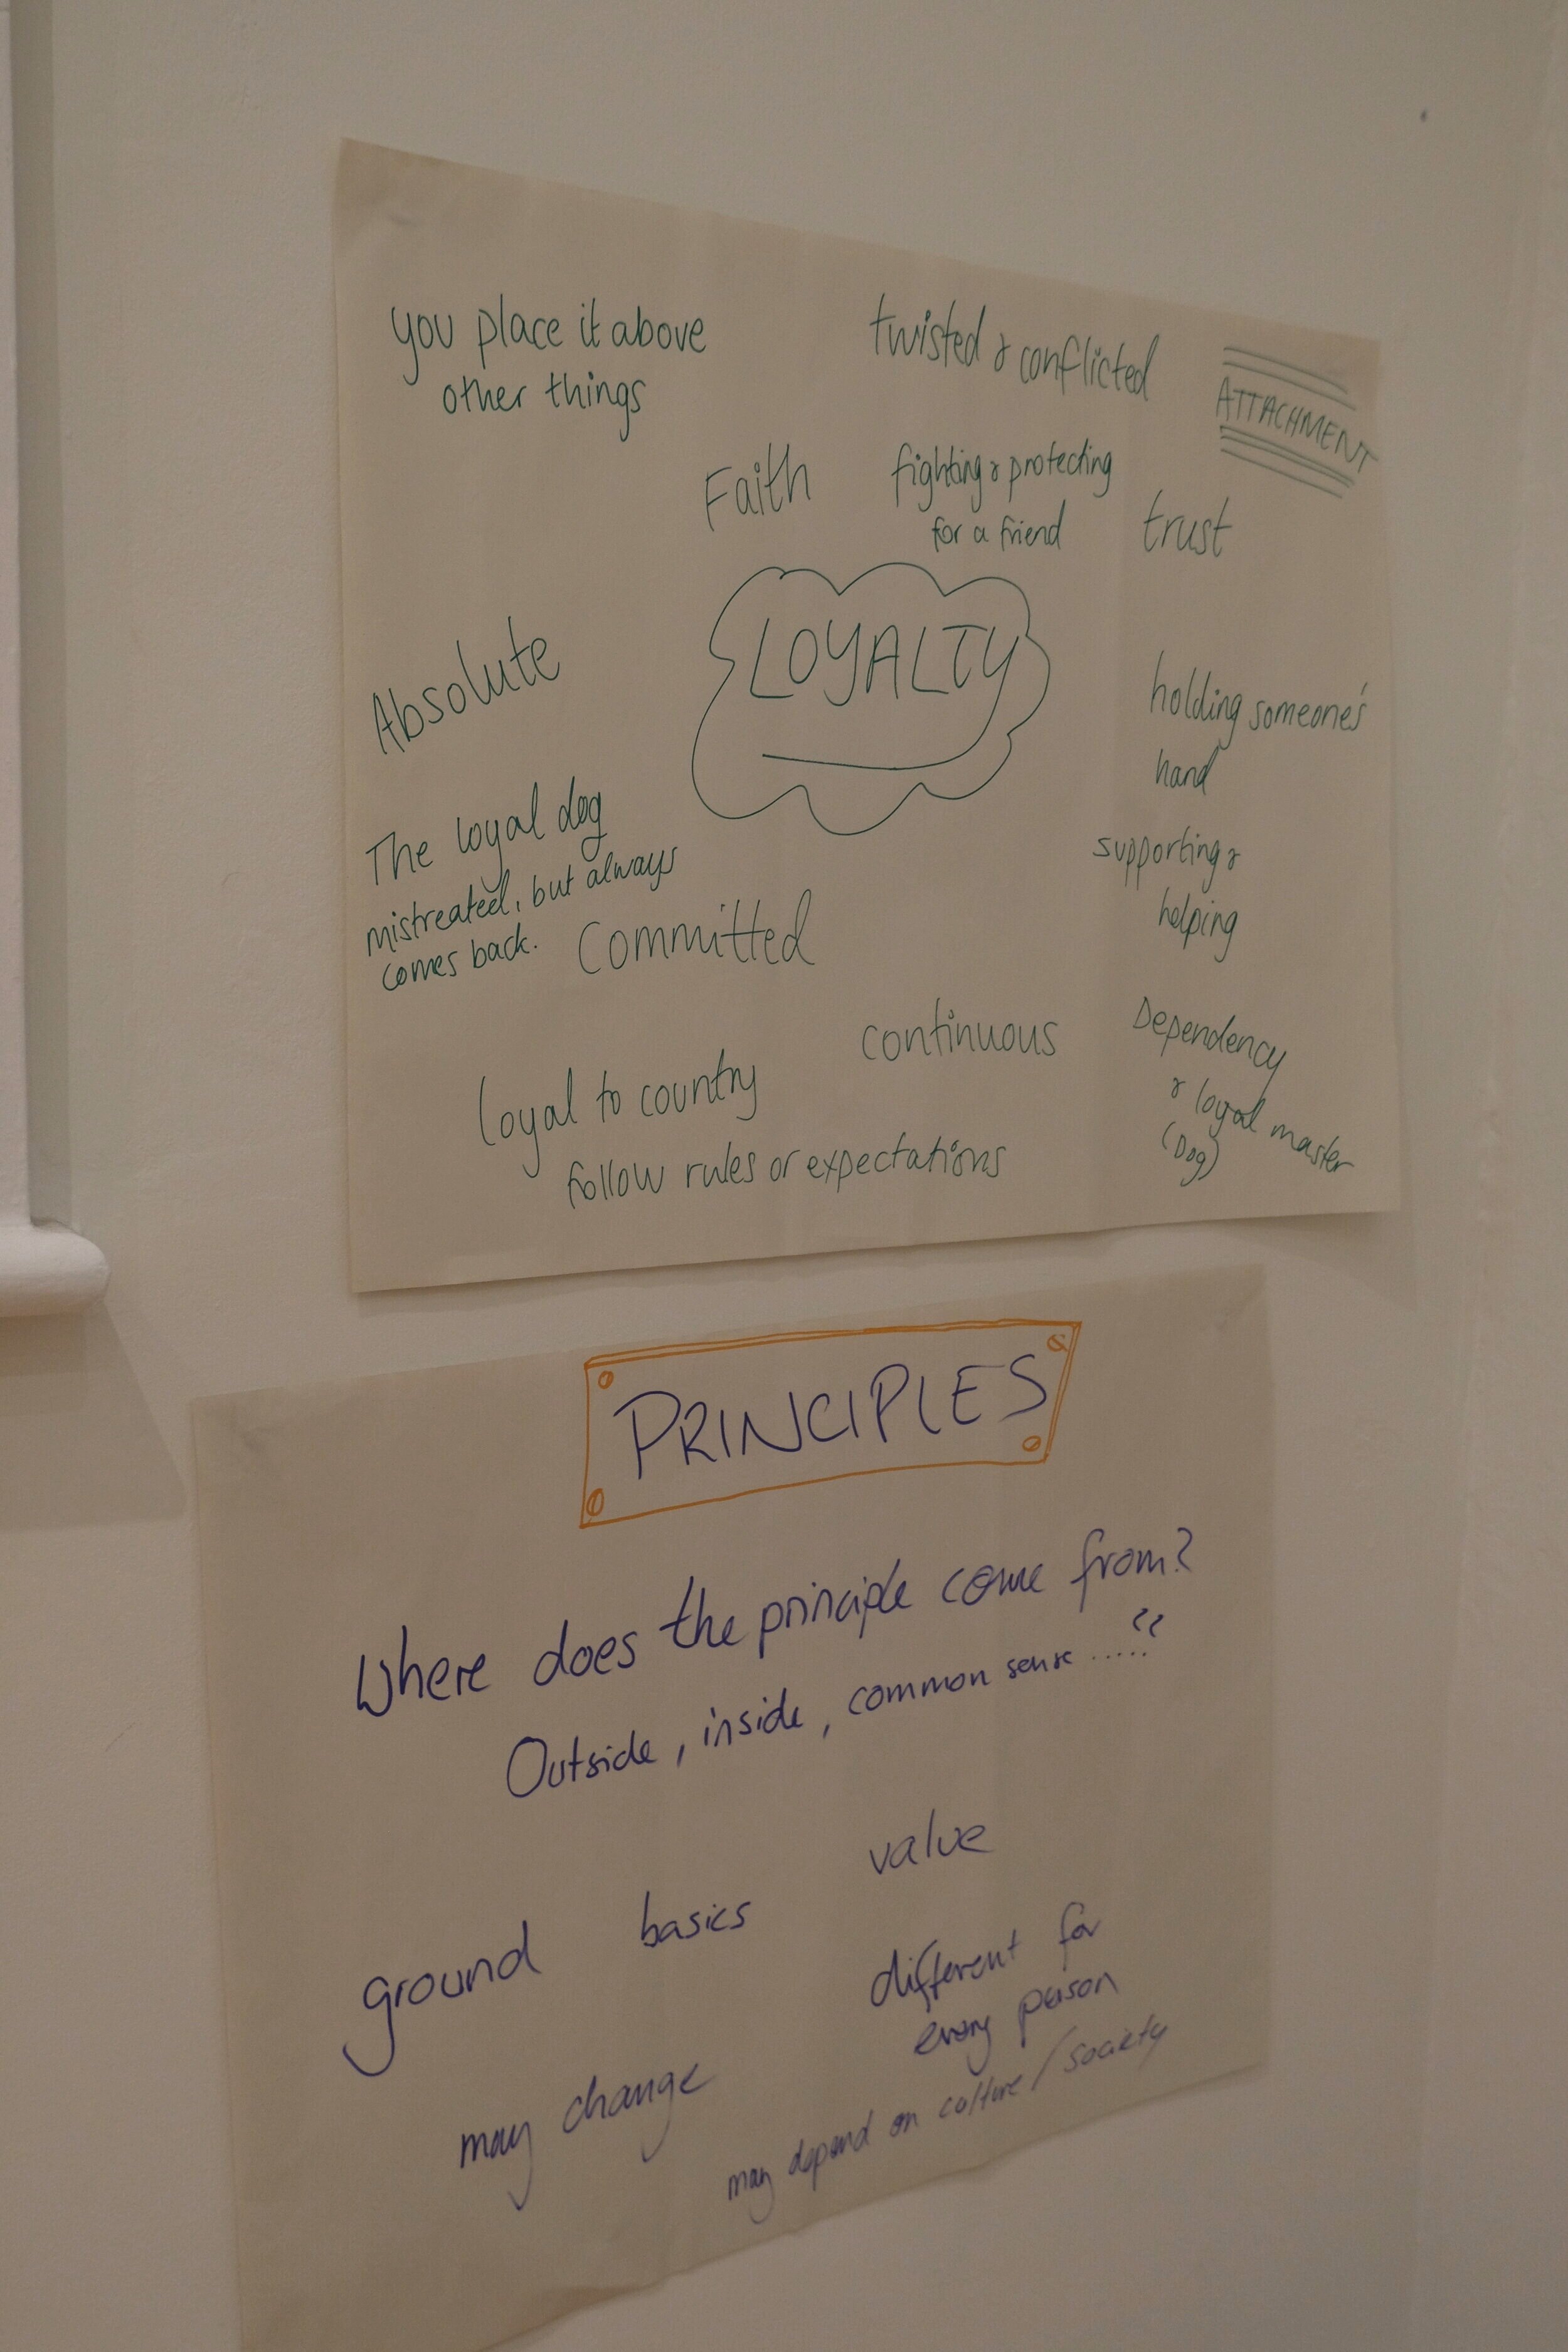 you place it above
other things
twisted & conflicted
ATTACHMENT
Faith
fighting & protecting
for a friend
trust
LOYALTY
Absolute
holding someone's
hand
The loyal dog
mistreated, but always
comes back.
supporting &
helping
Committed
continuous
Dependency
& loyal master
(Dog)
loyal to country
follow rules or expectations
PRINCIPLES
Where does the principle come from?
Outside, inside, common sense .....??
value
ground basics
different for
every person
may change
may depend on culture / society